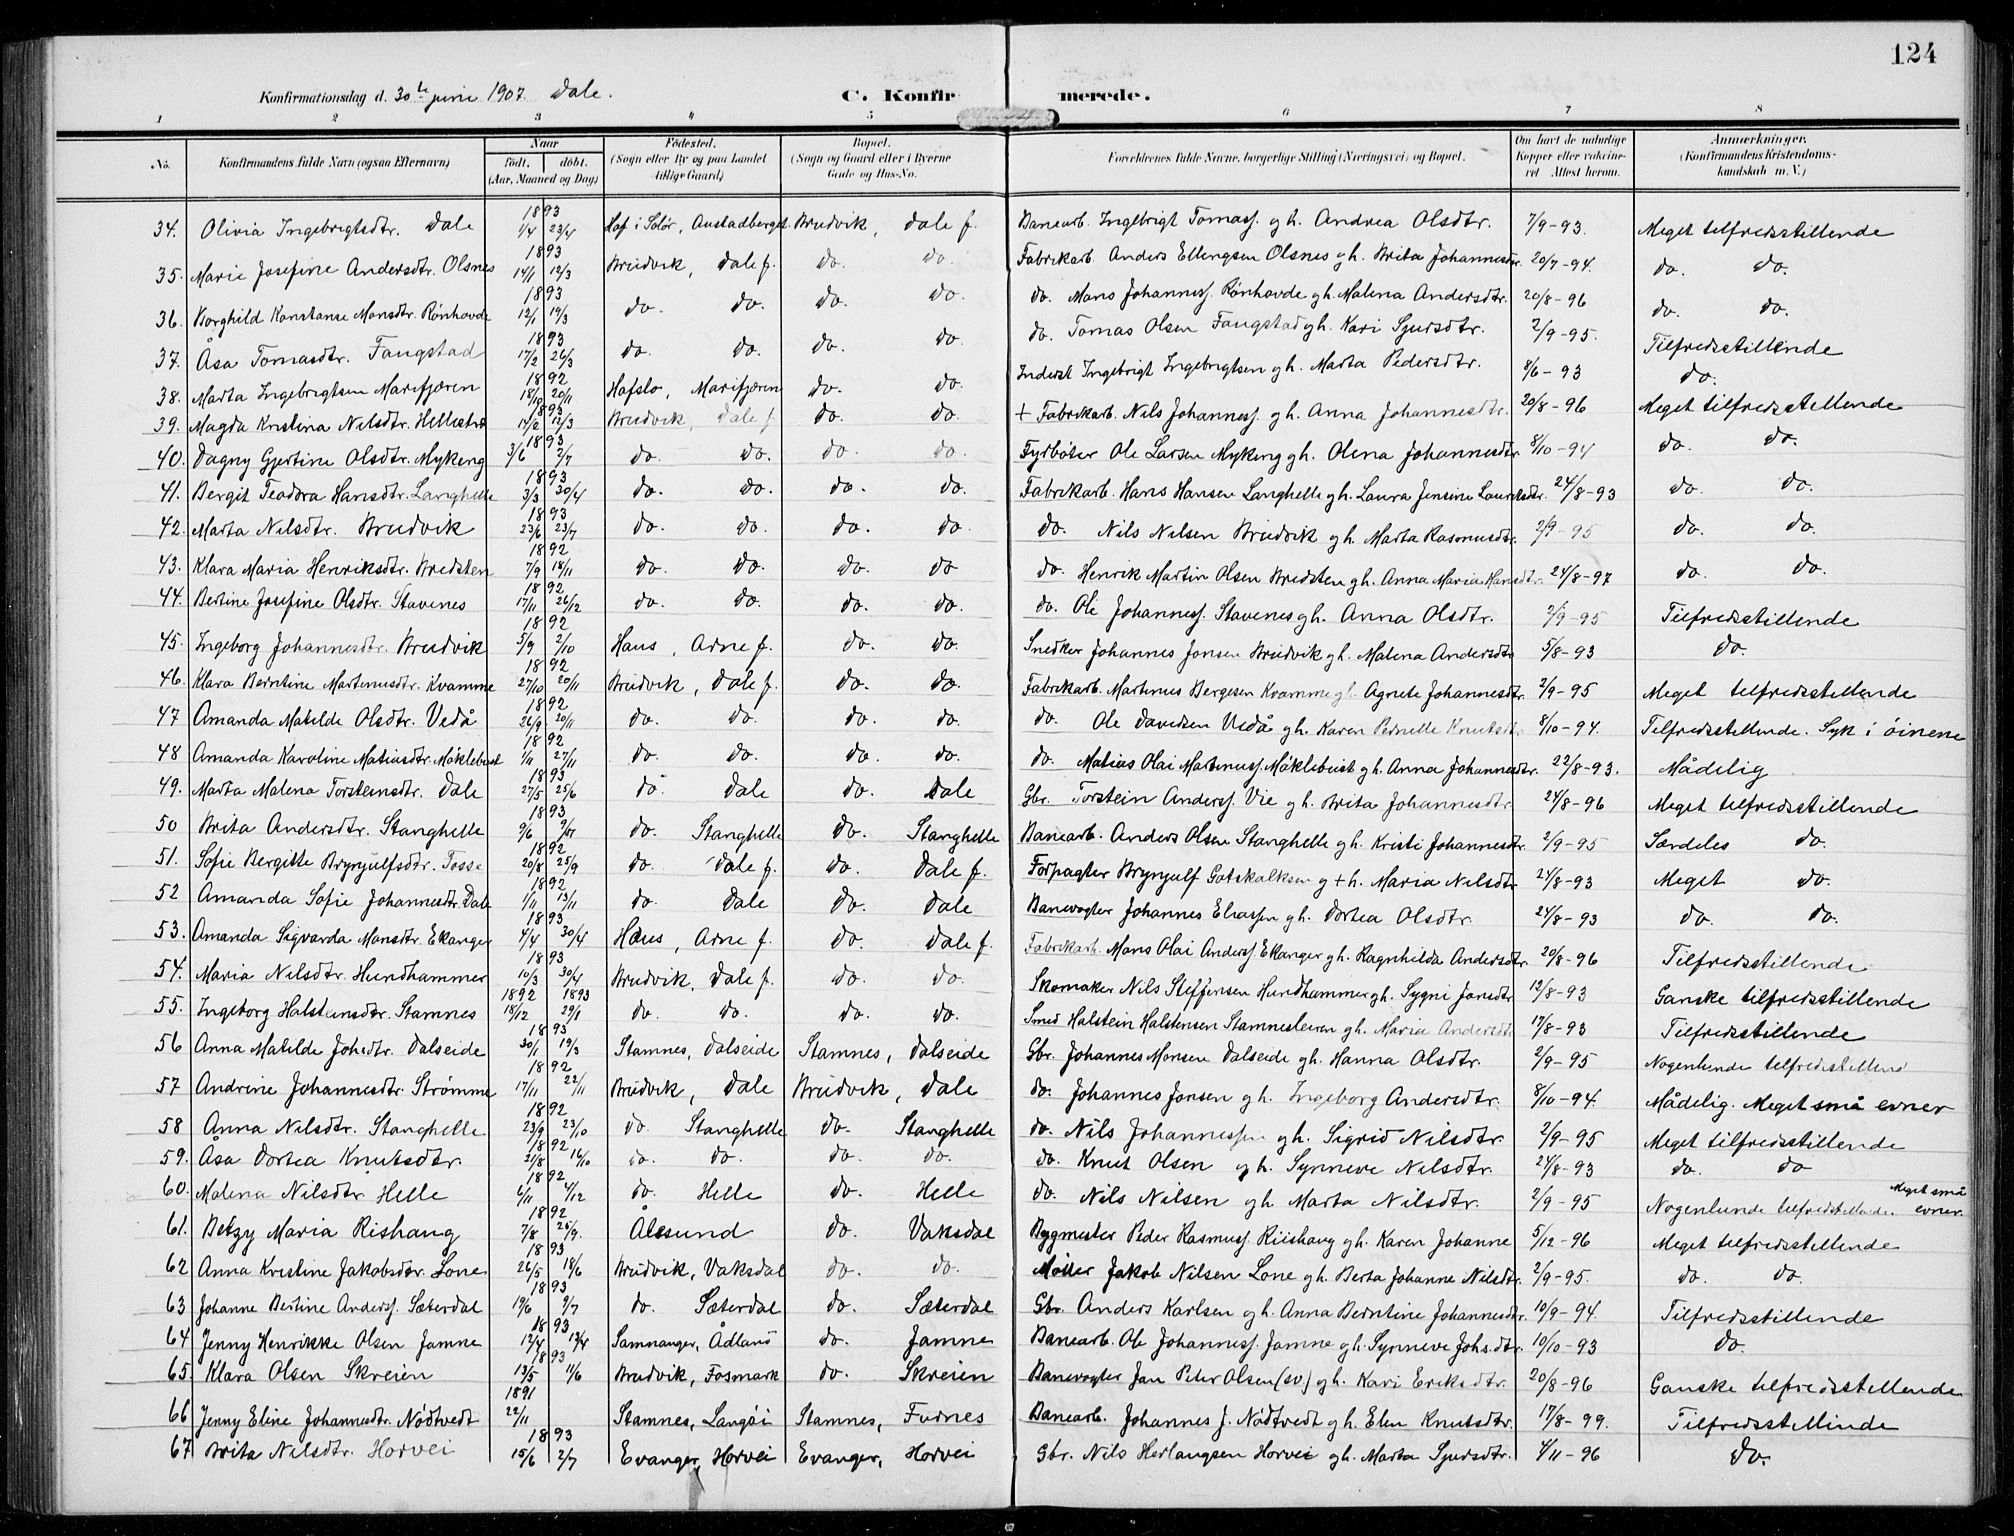 124
Konfirmationsdag d. 30te juni 1907. Dale. C. Konfirmerede.
1 2 3 4 5 6 7 8
No. Konfirmandens fulde Navn (ogsaa Efternavn) Naar født. døbt. (Aar, Maaned og Dag) Fødested. (Sogn eller By og paa Landet tillige Gaard) Bopæl. (Sogn og Gaard eller i Byerne Gade og Hus-No. Forældrenes fulde Navne, borgerlige Stilling (Næringsvei) og Bopæl. Om havt de naturlige Kopper eller vaccineret Attest herom. Anmærkninger. (Konfirmandens Kristendomskundskab m. V.)
34. Olivia Ingebrigtsdtr. Dale 1893 1/4 23/4 Hof i Solør, Austadberget Brudvik, Dale f. Banearb. Ingebrigt Tomass. gh. Andrea Olsdtr. 7/9-93. Meget tilfredsstillende
35. Marie Josefine Andersdtr. Olsnes 1893 14/1 12/3 Brudvik, Dale f. do. do. Fabrikarb. Anders Ellingsen Olsnes gh. Brita Johannesdtr. 20/7-94. do. do.
36. Borghild Konstanse Monsdtr. Rønhovde 1893 12/1 19/3 do. do. do. do. do. Mons Johanness. Rønhovde gh. Malena Andersdtr. 20/8-96 do. do.
37. Åsa Tomasdtr. Fangstad 1893 17/2 26/3 do. do. do. do. do. Tomas Olsen Fangstad gh. Kari Sjursdtr. 2/9-95. Tilfredsstillende
38. Marta Ingebrigtsen Marifjæren 1892 18/10 20/11 Hafslo, Marifjæren do. do. Inderst Ingebrigt Ingebrigtsen gh. Marta Pedersdtr. 8/6-93 do.
39. Magda Kristina Nilsdtr. Hellestræ 1893 14/2 12/3 Brudvik, Dale f. do. do. + Fabrikarb. Nils Johanness. gh. Anna Johannesdtr. 20/8-96 Meget tilfredsstillende
40. Dagny Gjertine Olsdtr. Myking 1893 3/6 2/7 do. do. do. do. Fyrbøter Ole Larsen Myking gh. Olina Johannesdtr. 8/10-94 do. do.
41. Bergit Teodora Hansdtr. Langhelle 1893 3/3 30/4 do. do. do. do. Fabrikarb. Hans Hansen Langhelle gh. Laura Jensine Lauritsdtr. 24/8-93 do. do.
42. Marta Nilsdtr. Brudvik 1893 23/6 23/7 do. do. do. do. do. Nils Nilsen Brudvik gh. Marta Rasmusdtr. 2/9-95 do. do.
43. Klara Maria Henriksdtr. Bredsten 1892 7/9 18/11 do. do. do. do. do. Henrik Martin Olsen Bredsten gh. Anna Maria Hansdtr. 24/8-97 do. do.
44. Bertine Josefine Olsdtr. Stavenes 1892 17/11 26/12 do. do. do. do. do. Ole Johanness. Stavenes gh. Anna Olsdtr. 2/9-95 Tilfredsstillende
45. Ingeborg Johannesdtr. Brudvik 1892 5/9 2/10 Haus, Arne f. do. do. Snedker Johannes Jonsen Brudvik gh. Malena Andersdtr 5/8-93 do.
46. Klara Berntine Martinusdtr. Kvamme 1892 27/10 20/11 Brudvik, Dale f. do. do. Fabrikarb. Martinus Bergesen Kvamme gh. Agnete Johannesdtr. 2/9-95 Meget tilfredsstillende
47 Amanda Matilde Olsdtr. Vedå 1892 26/9 20/11 do. do. do. do. do. Ole Davidsen Vedå gh. Karen Pernille Knutsdtr. 8/10-94. Tilfredsstillende. Syk i øinene
48 Amanda Karoline Matiasdtr. Møklebust 1892 1/11 27/11 do. do. do. do. do. Matias Olai Martinuss. Møklebust gh. Anna Johannesdtr. 22/8-93. Mådelig
49. Marta Malena Torsteinsdtr. Dale 1893 27/5 25/6 do Dale do. Dale Gbr. Torstein Anderss. Vie gh. Brita Johannesdtr. 24/8-96 Meget tilfredsstillende
50 Brita Andersdtr. Stanghelle 1893 9/6 do. Stanghelle do. Stanghelle Banearb. Anders Olsen Stanghelle gh. Kristi Johannesdtr. 2/9-95 Særdeles do.
51. Sofie Bergitte Brynjulfsdtr. Tosse 1892 20/8 25/9 do. Dale f. do. Dale f. Forpagter Brynjulf Gotskalksen g+h. Maria Nilsdtr 24/8-93 Meget do.
52 Amanda Sofie Johannesdtr. Dale 1892 1/11 13/11 do. Dale do. Dale Banevogter Johannes Eliassen gh. Dortea Olsdtr. 24/8-93 do. do.
53. Amanda Sigvarda Monsdtr. Ekanger 1893 4/4 30/4 Haus, Arne f. do. Dale f. Fabrikarb. Mons Olai Anderss. Ekanger gh. Ragnhilda Andersdtr. 20/8-96 Tilfredsstillende
54. Maria Nilsdtr. Hundhammer 1893 10/3 30/4 Brudvik, Dale f. do. do. Skomaker Nils Steffensen Hundhammer gh. Sygni Jonsdtr 13/8-93 Ganske tilfredsstillende
55. Ingeborg Halsteinsdtr. Stamnes 1892 1893 18/12 29/1 do. do. do. do. Smed Halstein Halstensen Stamnesleiren gh. Maria Andersdtr. 17/8-93 Tilfredsstillende
56 Anna Matilde Johsdtr. Dalseide 1893 30/1 19/3 Stamnes, Dalseide Stamnes, Dalseide Gbr. Johannes Monsen Dalseide gh. Hanna Olsdtr. 2/9-95 Nogenlunde tilfredsstillend
57 Andrine Johannesdtr Strømme 1892 17/11 22/11 Brudvik, Dale Brudvik, Dale do. Johannes Jonsen gh. Ingeborg Andersdtr. 8/10-94. Mådelig. Meget små evner
58 Anna Nilsdtr. Stanghelle 1892 23/9 23/10 do. Stanghelle do. Stanghelle do. Nils Johannessen gh. Sigrid Nilsdtr. 2/9-95 Meget tilfredsstillende
59. Åsa Dortea Knutsdtr. 1892 21/8 16/10 do. do. do. do. do. Knut Olsen gh. Synneve Nilsdtr. 24/8-93 do. do
60. Malena Nilsdtr. Helle 1892 6/11 4/12 do. Helle do. Helle do. Nils Nilsen gh. Marta Nilsdtr. 2/9-95 Nogenlunde tilfredsstillende. Meget små evner.
61. Betzy Maria Rishaug 1892 7/8 25/9. Ålesund do. Vaksdal Bygmester Peder Rasmuss. Riishaug gh. Karen Johanne 5/12-96 Meget tilfredsstillende
62 Anna Kristine Jakobsdtr. Lone 1893 26/5 18/6 Brudvik, Vaksdal do. do. Møller Jakob Nilsen Lone gh. Berta Johanne Nilsdtr. 2/9-95. do. do.
63 Johanne Bertine Anderss. Sæterdal 1893 19/6 9/7 do. Sæterdal do. Sæterdal Gbr. Anders Karlsen gh. Anna Berntine Johannesdtr. 10/9-94. Tilfredsstillende
64 Jenny Henrikke Olsen Jamne 1893 12/4 13/4 Samnanger, Ådland do. Jamne Banearb. Ole Johanness. Jamne gh. Synneve Johs.dtr. 10/10-93 do.
65. Klara Olsen Skreien 1893 13/5 11/6 Brudvik, Fosmark do. Skreien Banevogter Jan Peter Olsen (sv.) gh. Kari Eriksdtr. 20/8-96 Ganske tilfredsstillende
66 Jenny Eline Johannesdtr. Nødtvedt 1891 22/11 Stamnes, Langøi Stamnes, Furnes Banearb. Johannes J. Nødtvedt gh. Elen Knutsdtr. 17/8-99. Tilfredsstillende
67 Brita Nilsdtr. Horvei 1893 15/6 2/7 Evanger, Horvei Evanger, Horvei Gbr. Nils Herlaugsen Horvei gh. Marta Sjursdtr. 4/11-96 do.